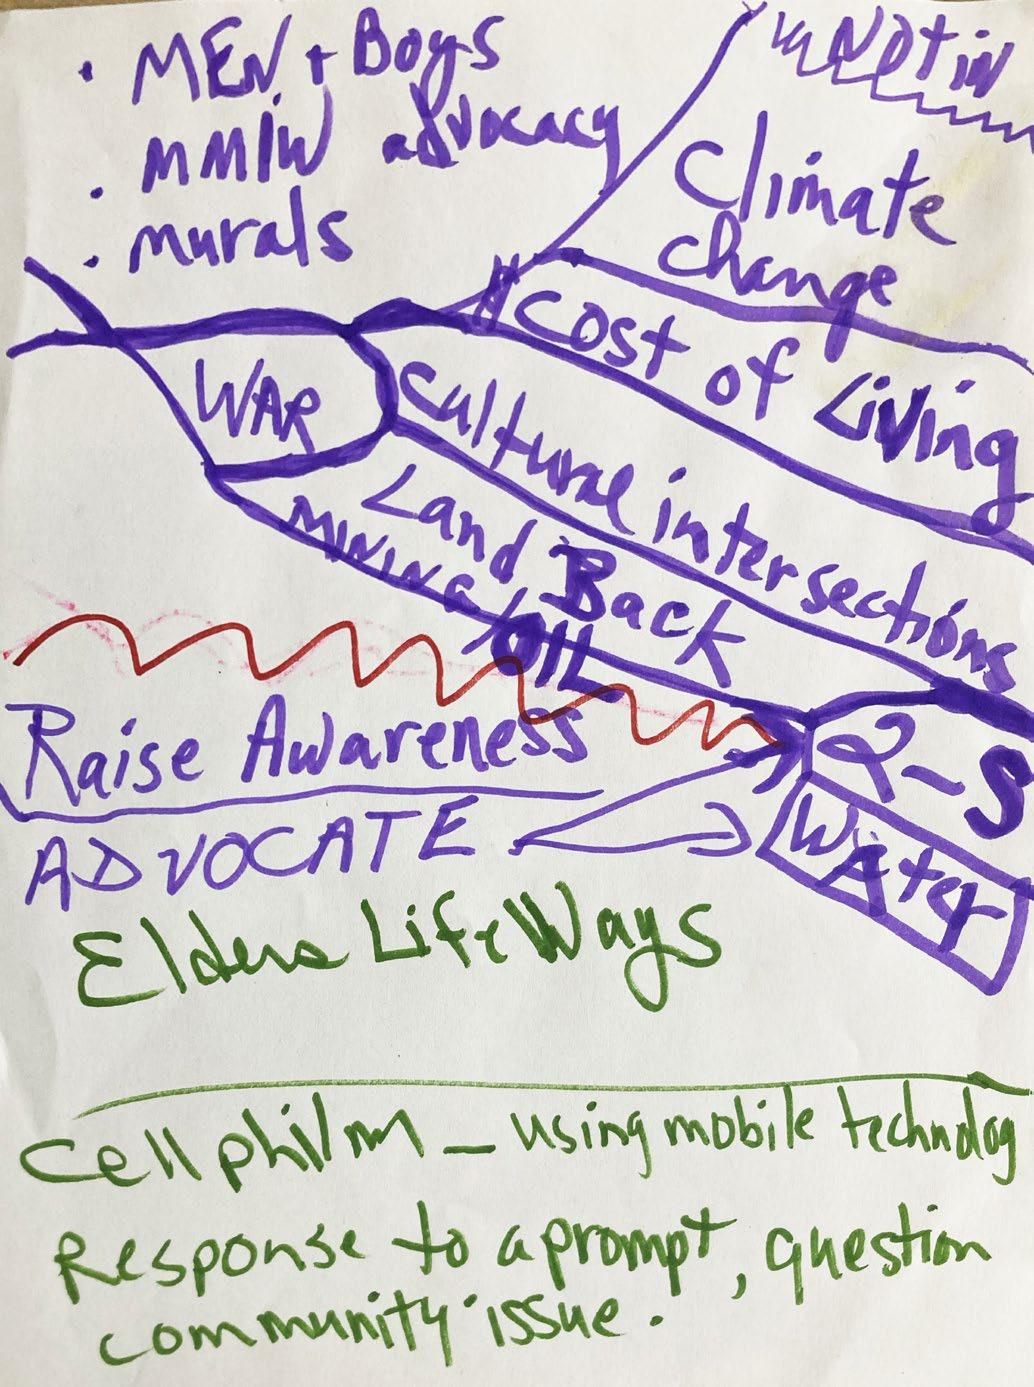 • MEN + Boys
• MMIW advocacy
• murals
NOT in
Climate
change
Cost of Living
WAR
Cultural intersections
Land Back
MINING/OIL
Raise Awareness
2-S
Water
ADVOCATE
Elders LifeWays
Cellphilm – using mobile technolog
Response to a prompt, question
community issue.